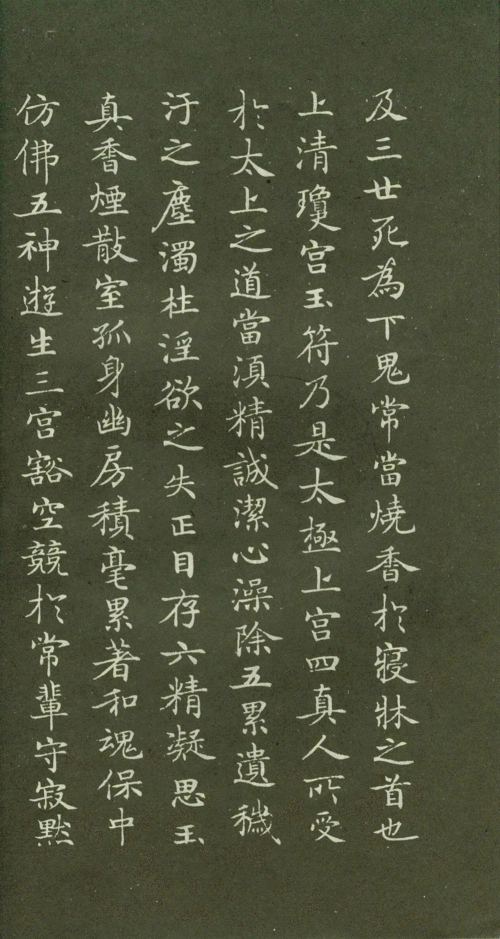 及三世死為下鬼常當燒香於寢牀之首也
上清瓊宮玉符乃是太極上宮四真人所受
於太上之道當湏精誠潔心澡除五累遺穢
汙之塵濁杜淫欲之失正目存六精凝思玉
真香煙散室孤身幽房積毫累著和魂保中
仿佛五神遊生三宮豁空競於常輩守寂默